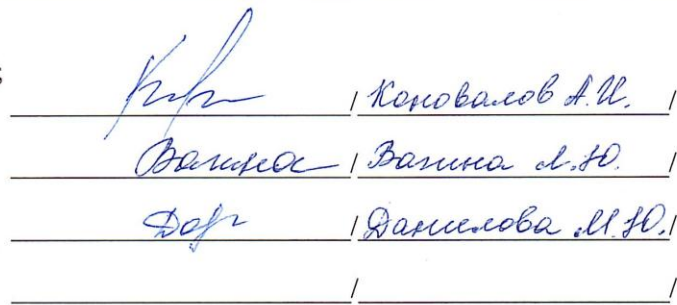 / Коновалов А.И. /
Вагина / Вагина Л.Ю. /
/ Данилова М.Ю. /
/ /